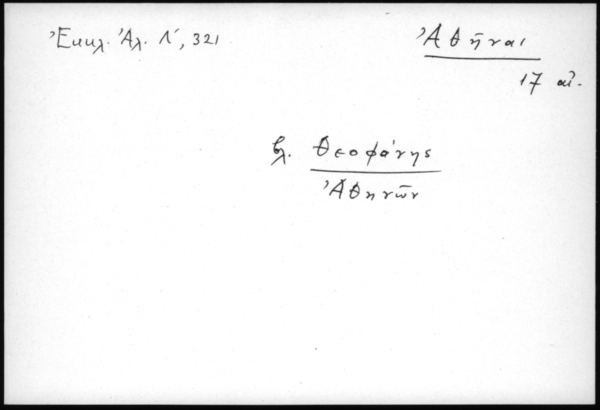 Ἐκκλ. Ἀλ. Λ', 321
Ἀθῆναι
17 αἰ.
βλ. Θεοφάνης
Ἀθηνῶν